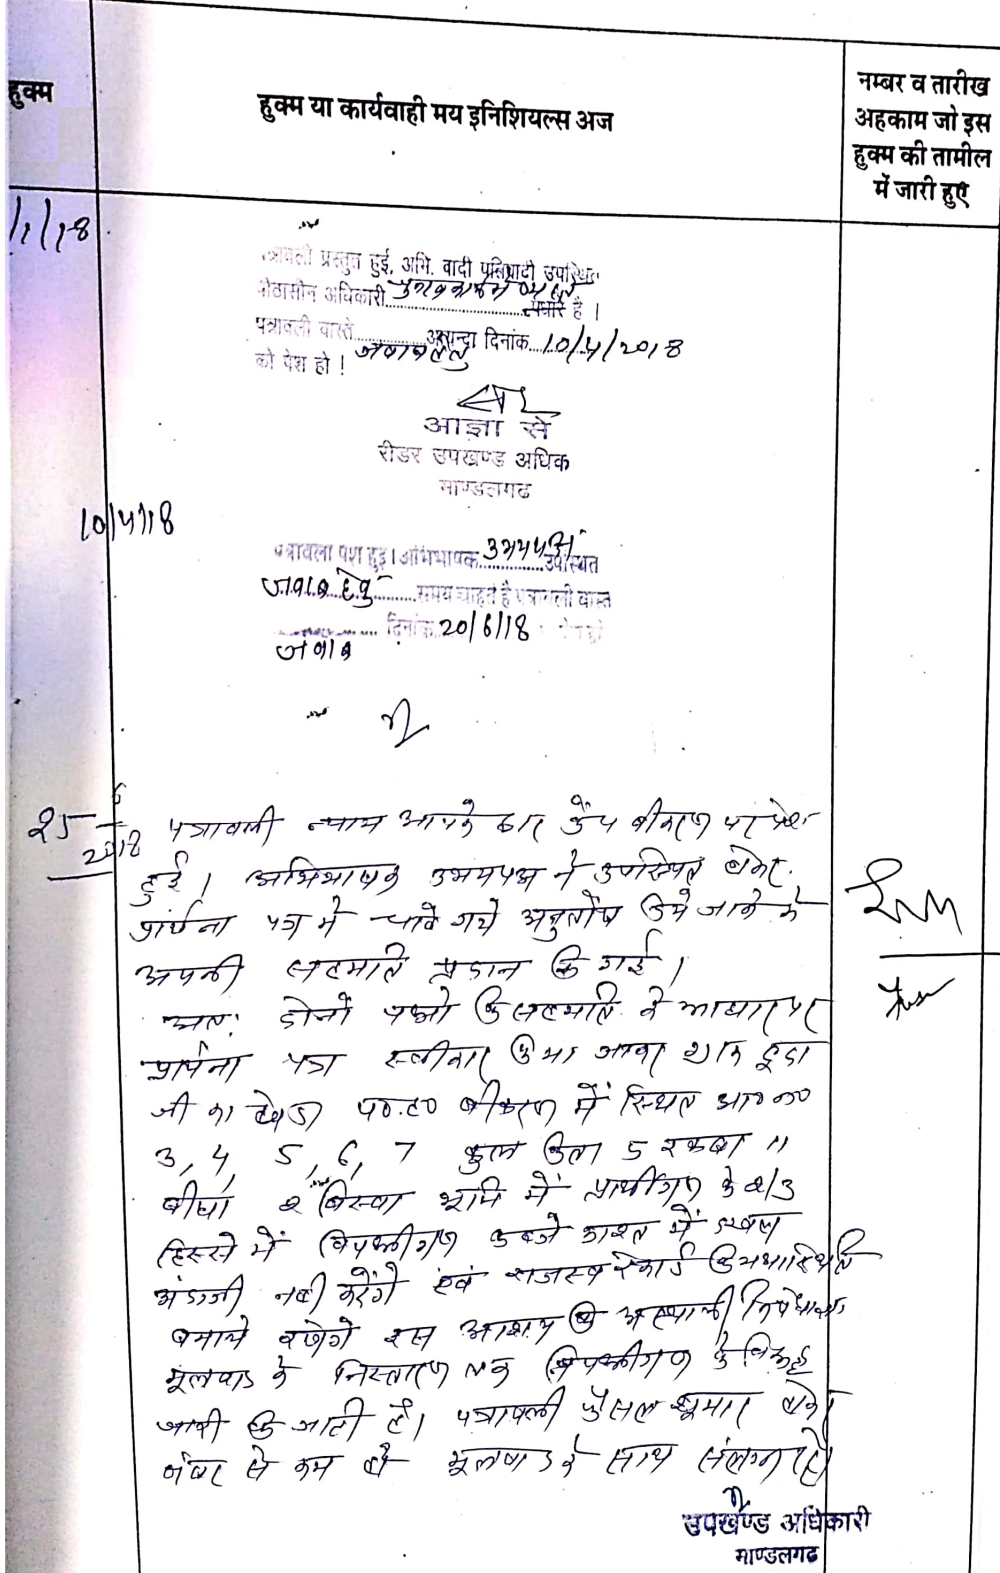 हुक्म
हुक्म या कार्यवाही मय इनिशियल्स अज
नम्बर व तारीख
अहकाम जो इस
हुक्म की तामील
में जारी हुए
/1/18
पत्रावली प्रस्तुत हुई, अभि. वादी प्रतिवादी उपस्थित
पीठासीन अधिकारी है ।
पत्रावली वास्ते दिनांक 10/4/2018
को पेश हो !
आज्ञा से
रीडर उपखण्ड अधिक
माण्डलगढ
10/4/18
पत्रावली पेश हुई । अभिभाषक उभयपक्ष उपस्थित
जवाब हेतु समय चाहते है पत्रावली वास्ते
जवाब दिनांक 20/6/18
25-6-2018 पत्रावली न्याय आपके द्वार कैंप बीकरण पर पेश
हुई । अभिभाषक उभयपक्ष ने उपस्थित होकर
प्रार्थना पत्र में चाहे गये अनुतोष दिये जाने में
अपनी सहमति प्रदान की गई ।
अतः दोनों पक्षो की सहमति के आधार पर
प्रार्थना पत्र स्वीकार किया जाकर ग्राम
जी का खेडा प०ह० बीकरण में स्थित आ०न०
3, 4, 5, 6, 7 कुल किता 5 रकबा 11
बीघा 2 बिस्वा भूमि में प्रार्थीगण के 2/3
हिस्से में विपक्षीगण कब्जे काश्त में दखल
अंदाजी नही करेंगे एवं राजस्व रेकार्ड की यथास्थिति
बनाये रखेगे इस आशय की अस्थाई निषेधाज्ञा
मूलवाद के निस्तारण तक विपक्षीगण के विरूद्ध
जारी की जाती है। पत्रावली फैसल शुमार होकर
नंबर से कम हो मूलवाद के साथ संलग्न रहे।
उपखण्ड अधिकारी
माण्डलगढ